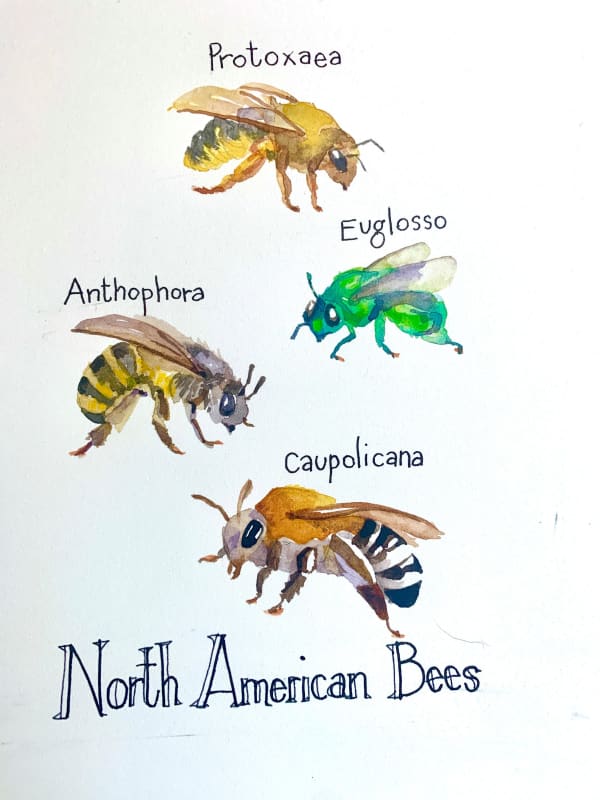 Protoxaea
Euglosso
Anthophora
Caupolicana
North American Bees